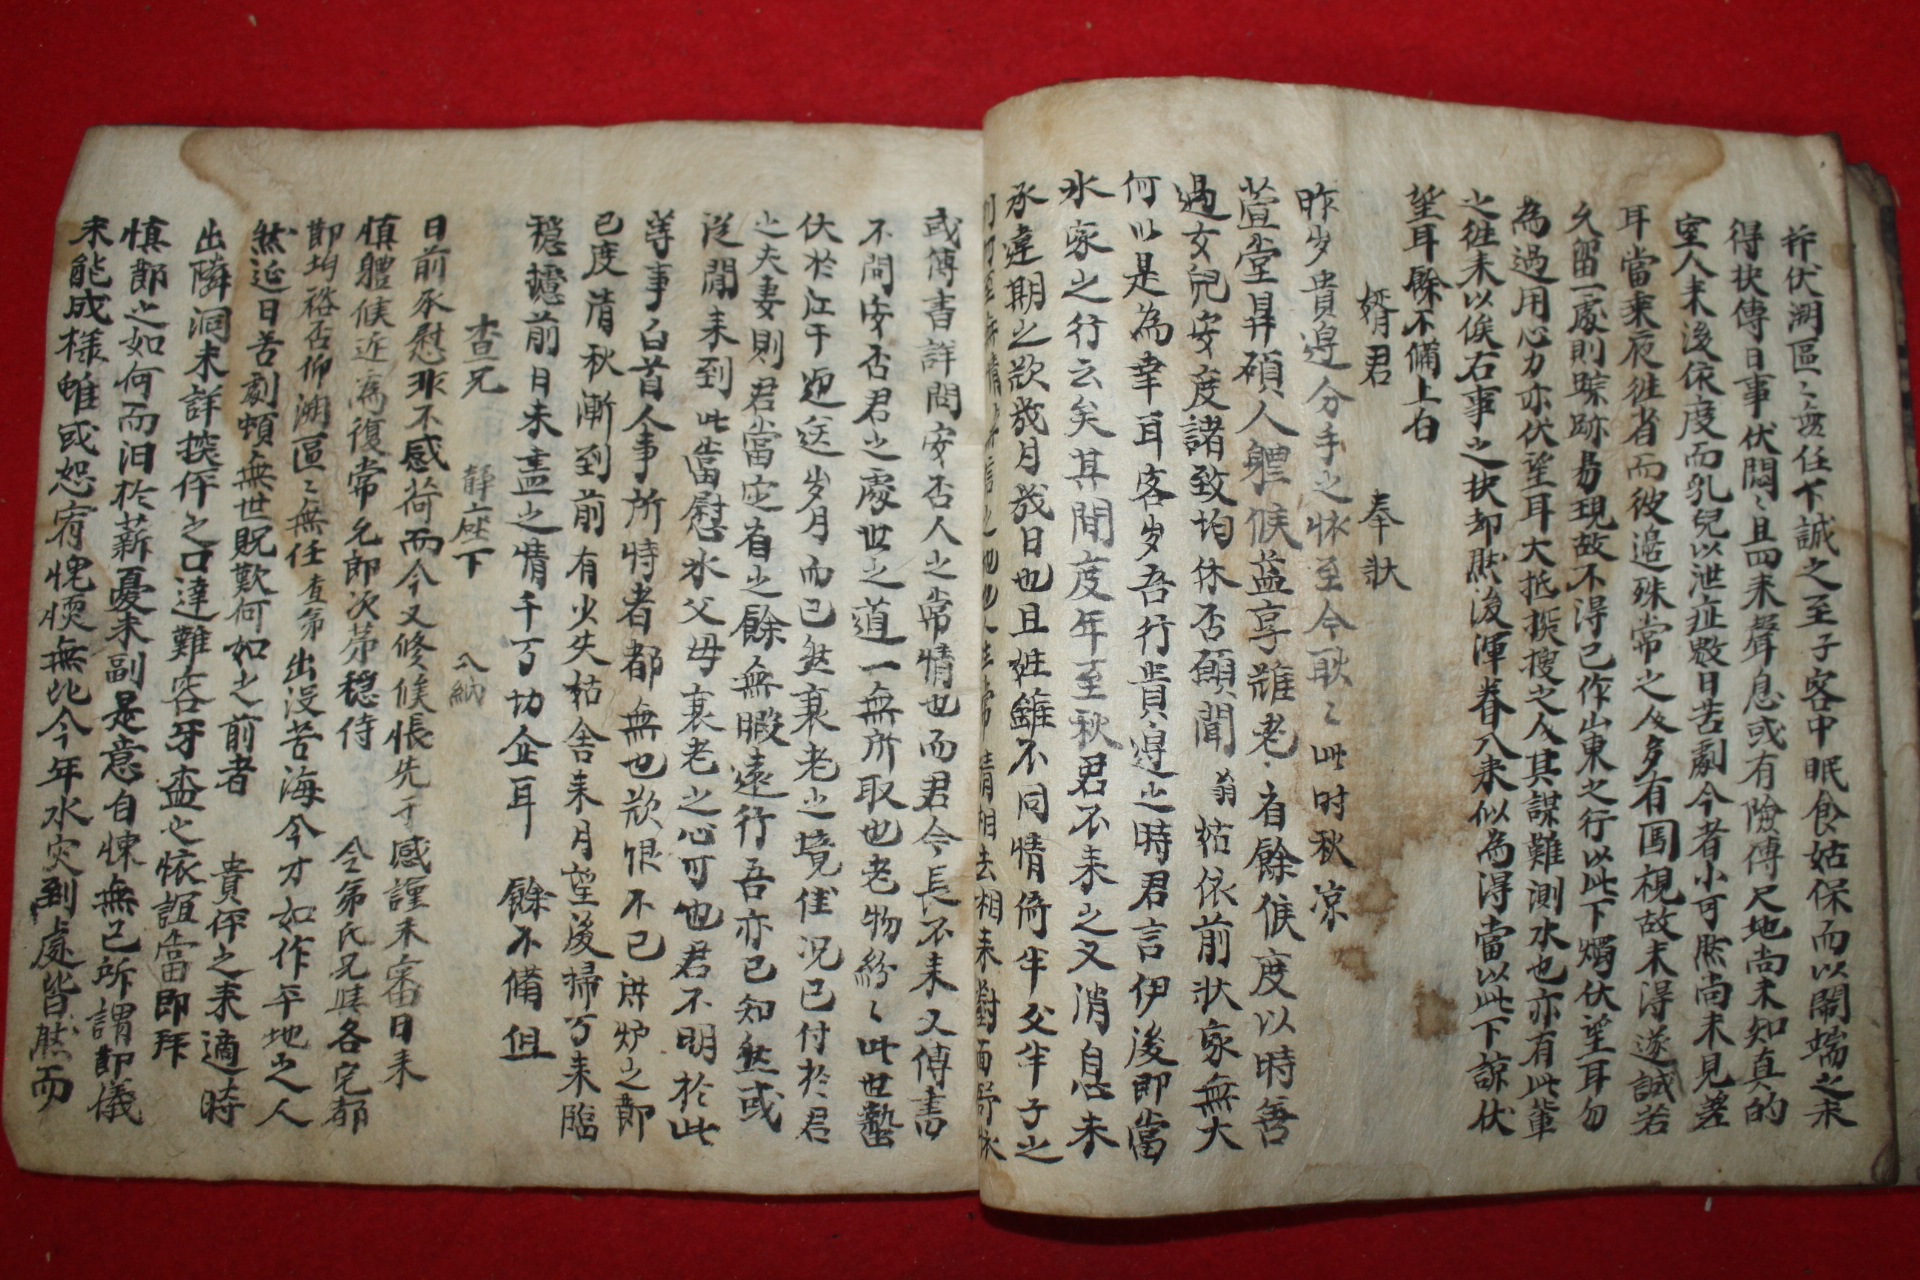 并伏溯區〻無任下誠之至子客中眠食姑保而以鬧端之未
得抉傳日事伏悶〻且四來聲息或有險傳尺地尚未知真的
室人來後依度而乳兒以泄症數日苦劇今者小可然尚未見差
耳當乘夜徃省而彼邊殊常之人多有圍視故未得遂誠若
久留一處則踪跡易現故不得已作山東之行以此下燭伏望耳勿
為過用心力亦伏望耳大抵探搜之人其謀難測水也亦有此輩
之徃來以俟右事之抉却然後渾眷入來似為得當以此下諒伏
望耳餘不備上白
婿君 奉狀
昨岁貴邊分手之悵至今耿〻此时秋凉
萱堂曁碩人軆候益享難老省餘候度以時善
過女兒安度諸致均休否願聞翁枯依前狀家無大
何以是為幸耳客岁吾行貴邊之時君言伊後即當
氷家之行云矣其間度年至秋君不來之又消息未
承違期之歎幾月幾日也且姓雖不同情倚半父半子之
情相去相來對面舒悵
或傳書詳問安否人之常情也而君今長不來又傳書
不問安否君之處世之道一無所取也老物紛〻此世蟄
伏於江干迎送岁月而已然衰老之境佳况已付於君
之夫妻則君當定有之餘無暇遠行吾亦已知然或
從間來到此當慰氷父母衰老之心可也君不明於此
等事白首人事所恃者都無也歎恨不已 炉之節
已度清秋漸到前有少失枯舍來月望後掃万來臨
穩攄前日未盡之情千万切企耳 餘不備 但
查兄 靜座下 入納
日前承慰非不感荷而今又修候悵先于感謹未審日來
愼體候近為復常允郞次苐穩侍 仝弟氏兄曁各宅都
節均裕否仰溯區〻無任查弟出没苦海今才如作平地之人
然近日苦劇頓無世況歎何如之前者 貴伻之來適時
出隣洞未詳探伻之口達難容牙盃之依誼當即拜
愼節之如何而汩於薪憂未副是意自悚無已所謂節儀
未能成樣惟或恕宥愧悚無比今年水灾到處皆然而